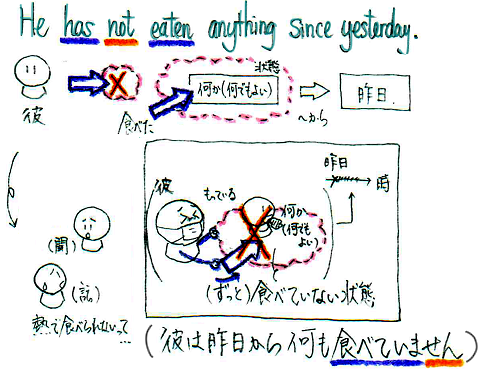 He has not eaten anything since yesterday.
彼
食べた
状態
何か(何でもよい)
~から
昨日
彼
もっている
何か
(何でも
よい)
昨日
時
(ずっと)食べていない状態
(聞)
(話)
熱で食べられないって…
(彼は昨日から何も食べていません)